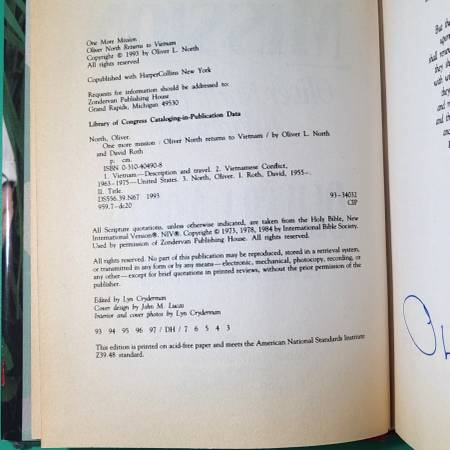 One More Mission
Oliver North Returns to Vietnam
Copyright © 1993 by Oliver L. North
All rights reserved
Copublished with HarperCollins New York
Requests for information should be addressed to:
Zondervan Publishing House
Grand Rapids, Michigan 49530
Library of Congress Cataloging-in-Publication Data
North, Oliver.
One more mission : Oliver North returns to Vietnam / by Oliver L. North
and David Roth
p. cm.
ISBN 0-310-40490-8
1. Vietnam—Description and travel. 2. Vietnamese Conflict,
1963–1975—United States. 3. North, Oliver. I. Roth, David, 1955–.
II. Title.
DS556.39.N67 1993 93-34032
959.7-dc20 CIP
All Scripture quotations, unless otherwise indicated, are taken from the Holy Bible, New
International Version®. NIV®. Copyright © 1973, 1978, 1984 by International Bible Society.
Used by permission of Zondervan Publishing House. All rights reserved.
All rights reserved. No part of this publication may be reproduced, stored in a retrieval system,
or transmitted in any form or by any means—electronic, mechanical, photocopy, recording, or
any other—except for brief quotations in printed reviews, without the prior permission of the
publisher.
Edited by Lyn Cryderman
Cover design by John M. Lucas
Interior and cover photos by Lyn Cryderman
93 94 95 96 97 / DH / 7 6 5 4 3
This edition is printed on acid-free paper and meets the American National Standards Institute
Z39.48 standard.
But th
shall renew
they sh